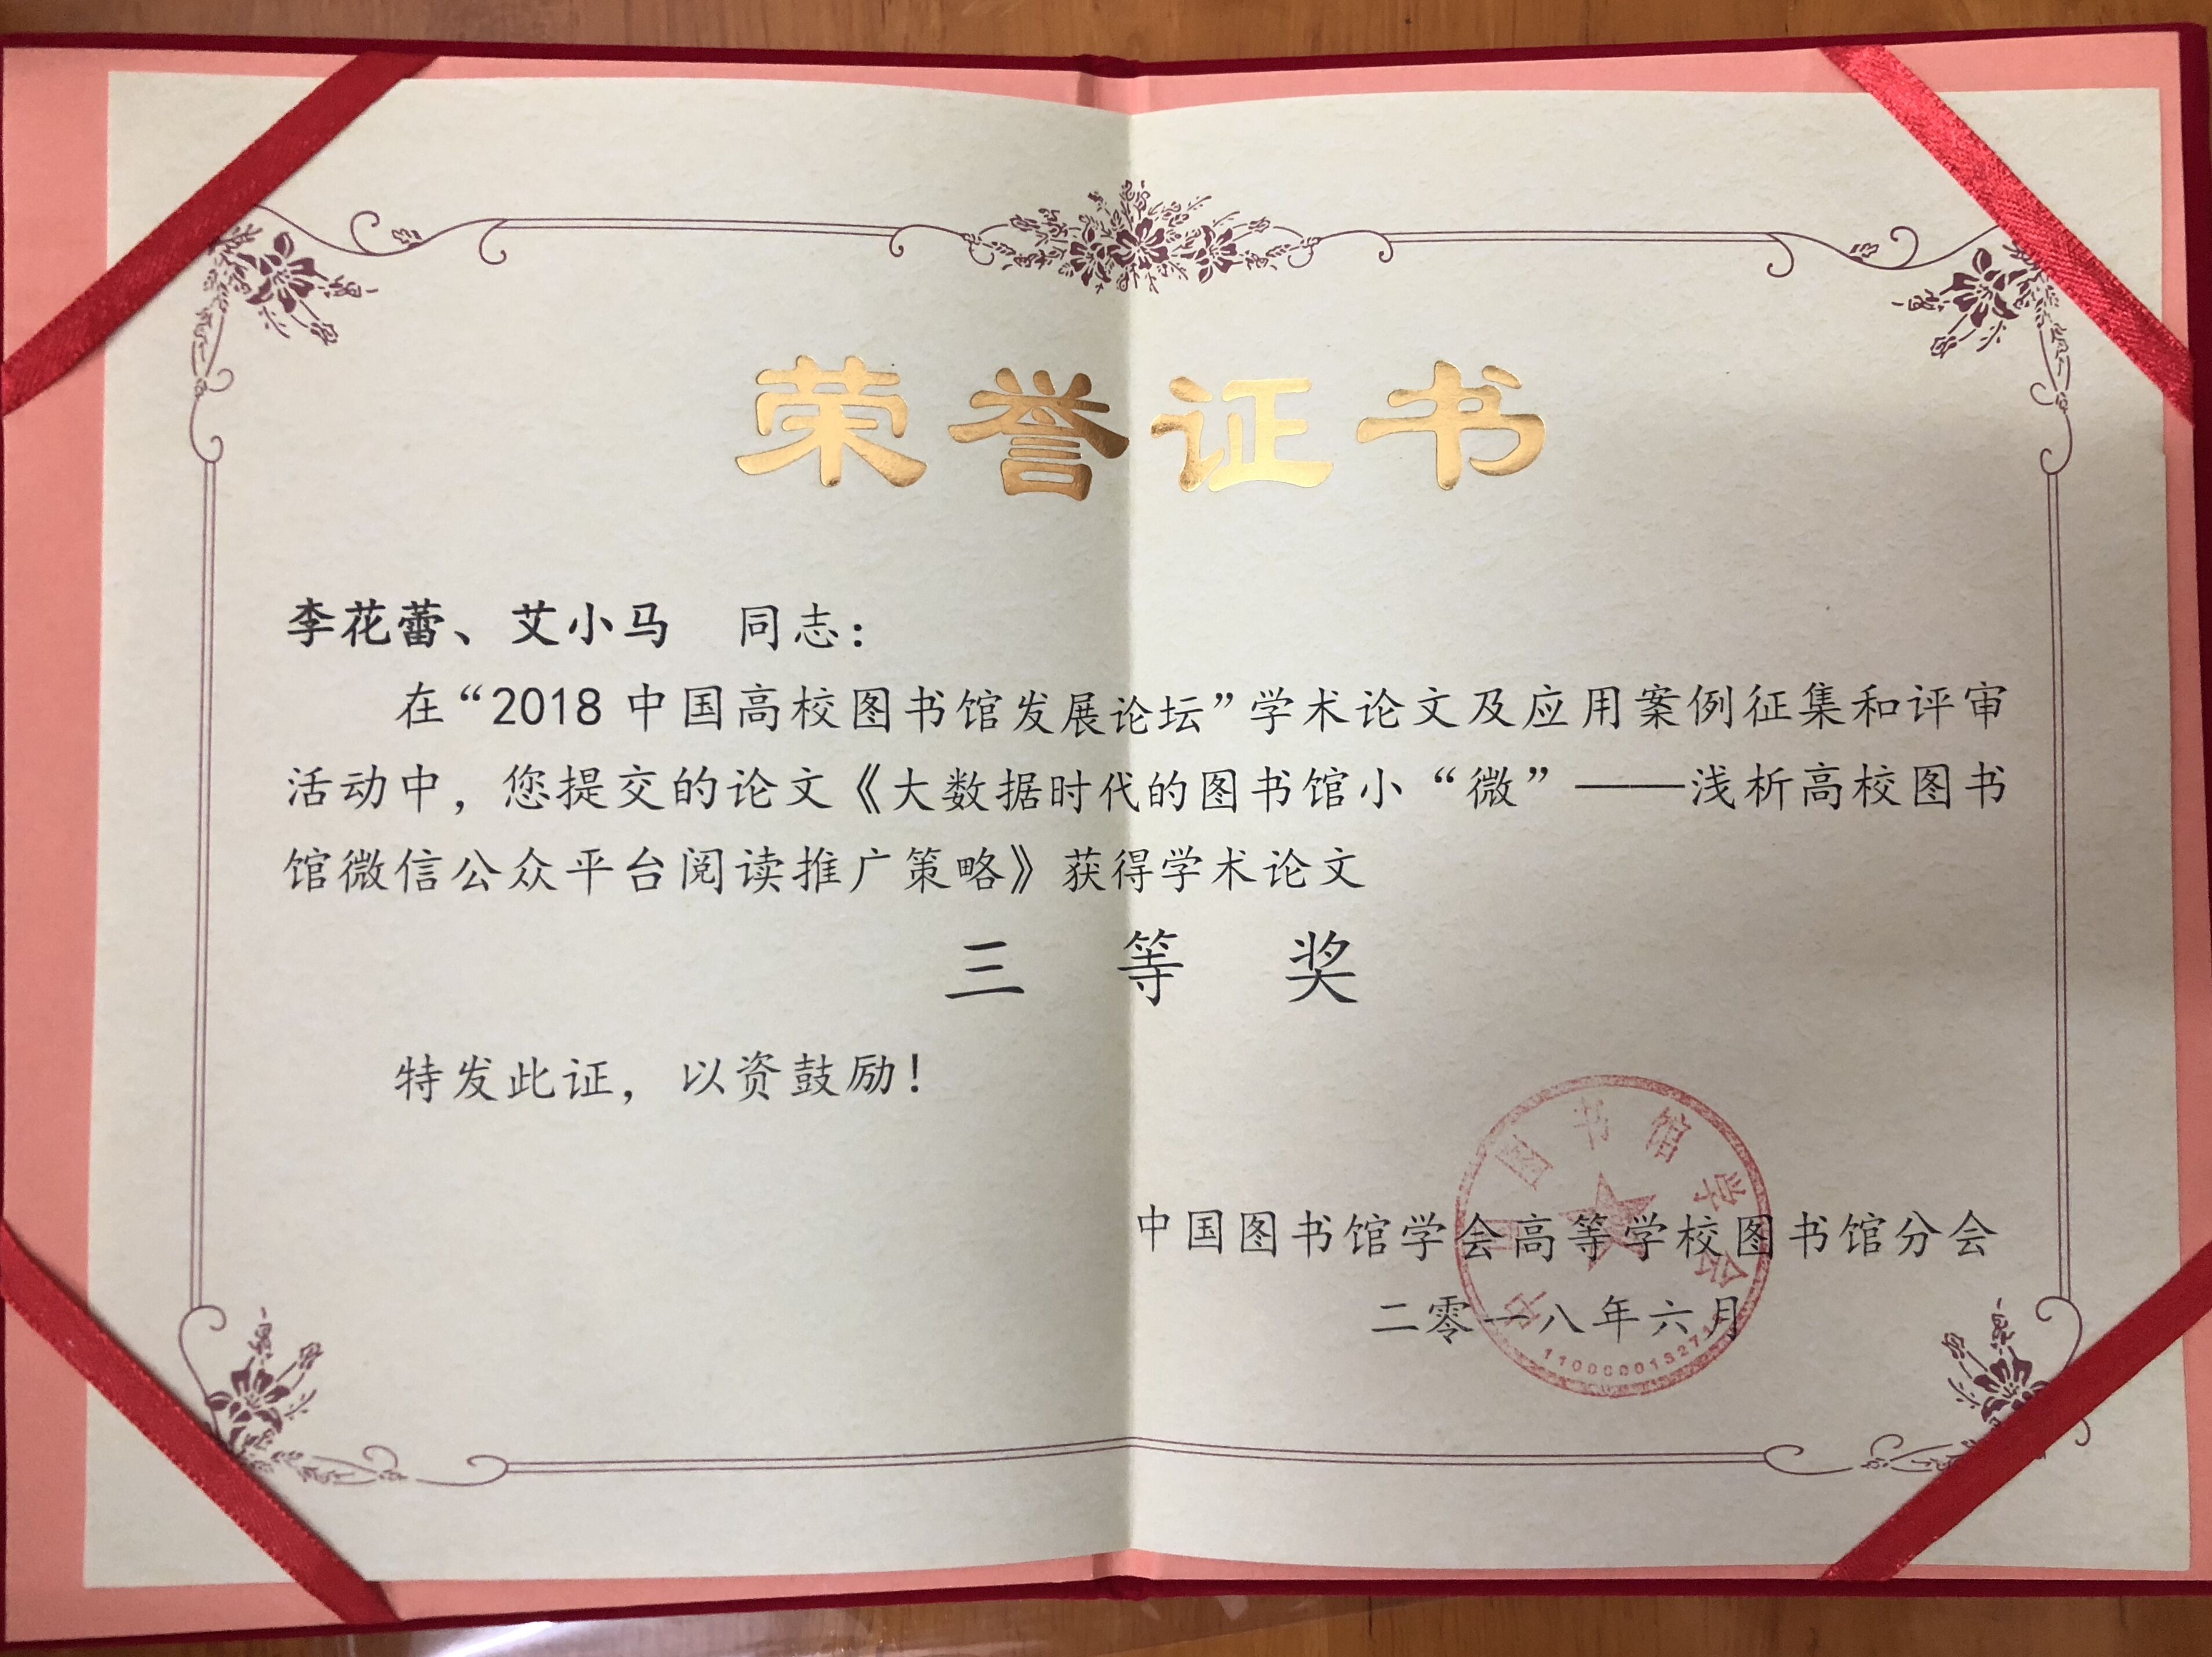 荣誉证书
李花蕾、艾小马 同志：
在“2018中国高校图书馆发展论坛”学术论文及应用案例征集和评审
活动中，您提交的论文《大数据时代的图书馆小“微”——浅析高校图书
馆微信公众平台阅读推广策略》获得学术论文
三 等 奖
特发此证，以资鼓励！
中国图书馆学会高等学校图书馆分会
二零一八年六月
中国图书馆学会